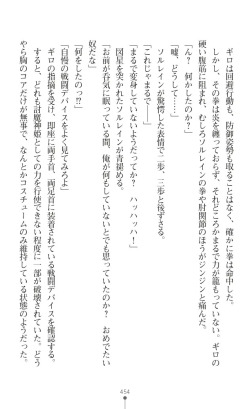 ギロは回避行動も、防御姿勢も取ることはなく、確かに拳は命中した。
しかし、その拳は炎を纏っておらず、それどころかまるで力が籠もっていない。ギロの
硬い腹筋に阻まれ、むしろソルレインの拳や肘関節のほうがジンジンと痛んだ。
「ん？　何かしたのか？」
「嘘、どうして……」
ソルレインが驚愕した表情で二歩、三歩と後ずさる。
「これじゃまるで――」
「まるで変身していないようだってか？　ハッハッハ！」
図星を突かれたソルレインが青褪める。
「お前が呑気に眠っている間、俺が何もしていないとでも思っていたのか？　おめでたい
奴だな」
「何をしたのっ!?」
「自慢の戦闘デバイスをよく見てみろよ」
ギロの指摘を受け、即座に両手首、両足首に装着されている戦闘デバイスを確認する。
すると、どれも討魔神姫としての力を使できない程度に一部が破壊されていた。どう
やら胸のコアだけが無事で、なんとかコスチュームのみ維持している状態のようだった。
454